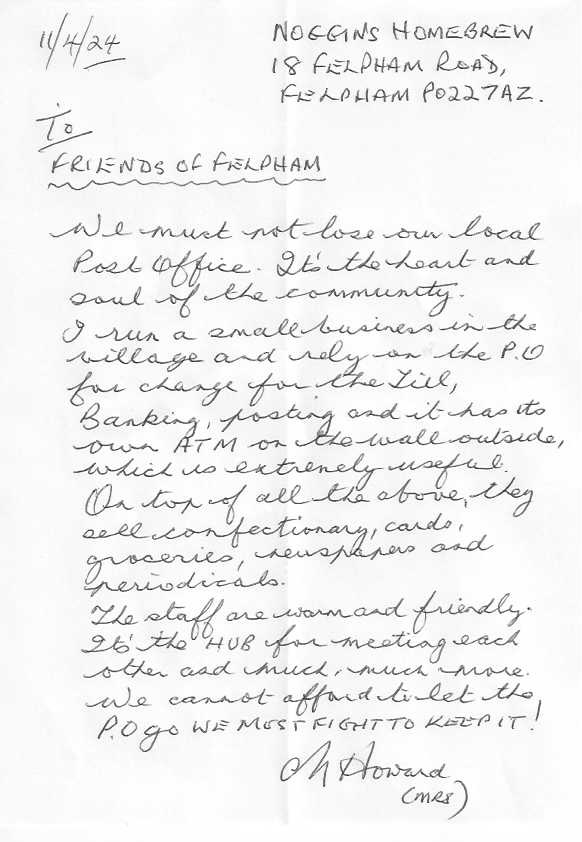 11/4/24
NOGGINS HOMEBREW
18 FELPHAM ROAD,
FELPHAM PO227AZ.
To
FRIENDS OF FELPHAM
We must not lose our local
Post Office. It's the heart and
soul of the community.
I run a small business in the
village and rely on the P.O
for change for the Till,
Banking, posting and it has its
own ATM on the wall outside,
which is extremely useful.
On top of all the above, they
sell confectionary, cards,
groceries, newspapers and
periodicals.
The staff are warm and friendly.
It's the HUB for meeting each
other and much, much more.
We cannot afford to let the
P.O go WE MUST FIGHT TO KEEP IT!
Howard
(MRS)